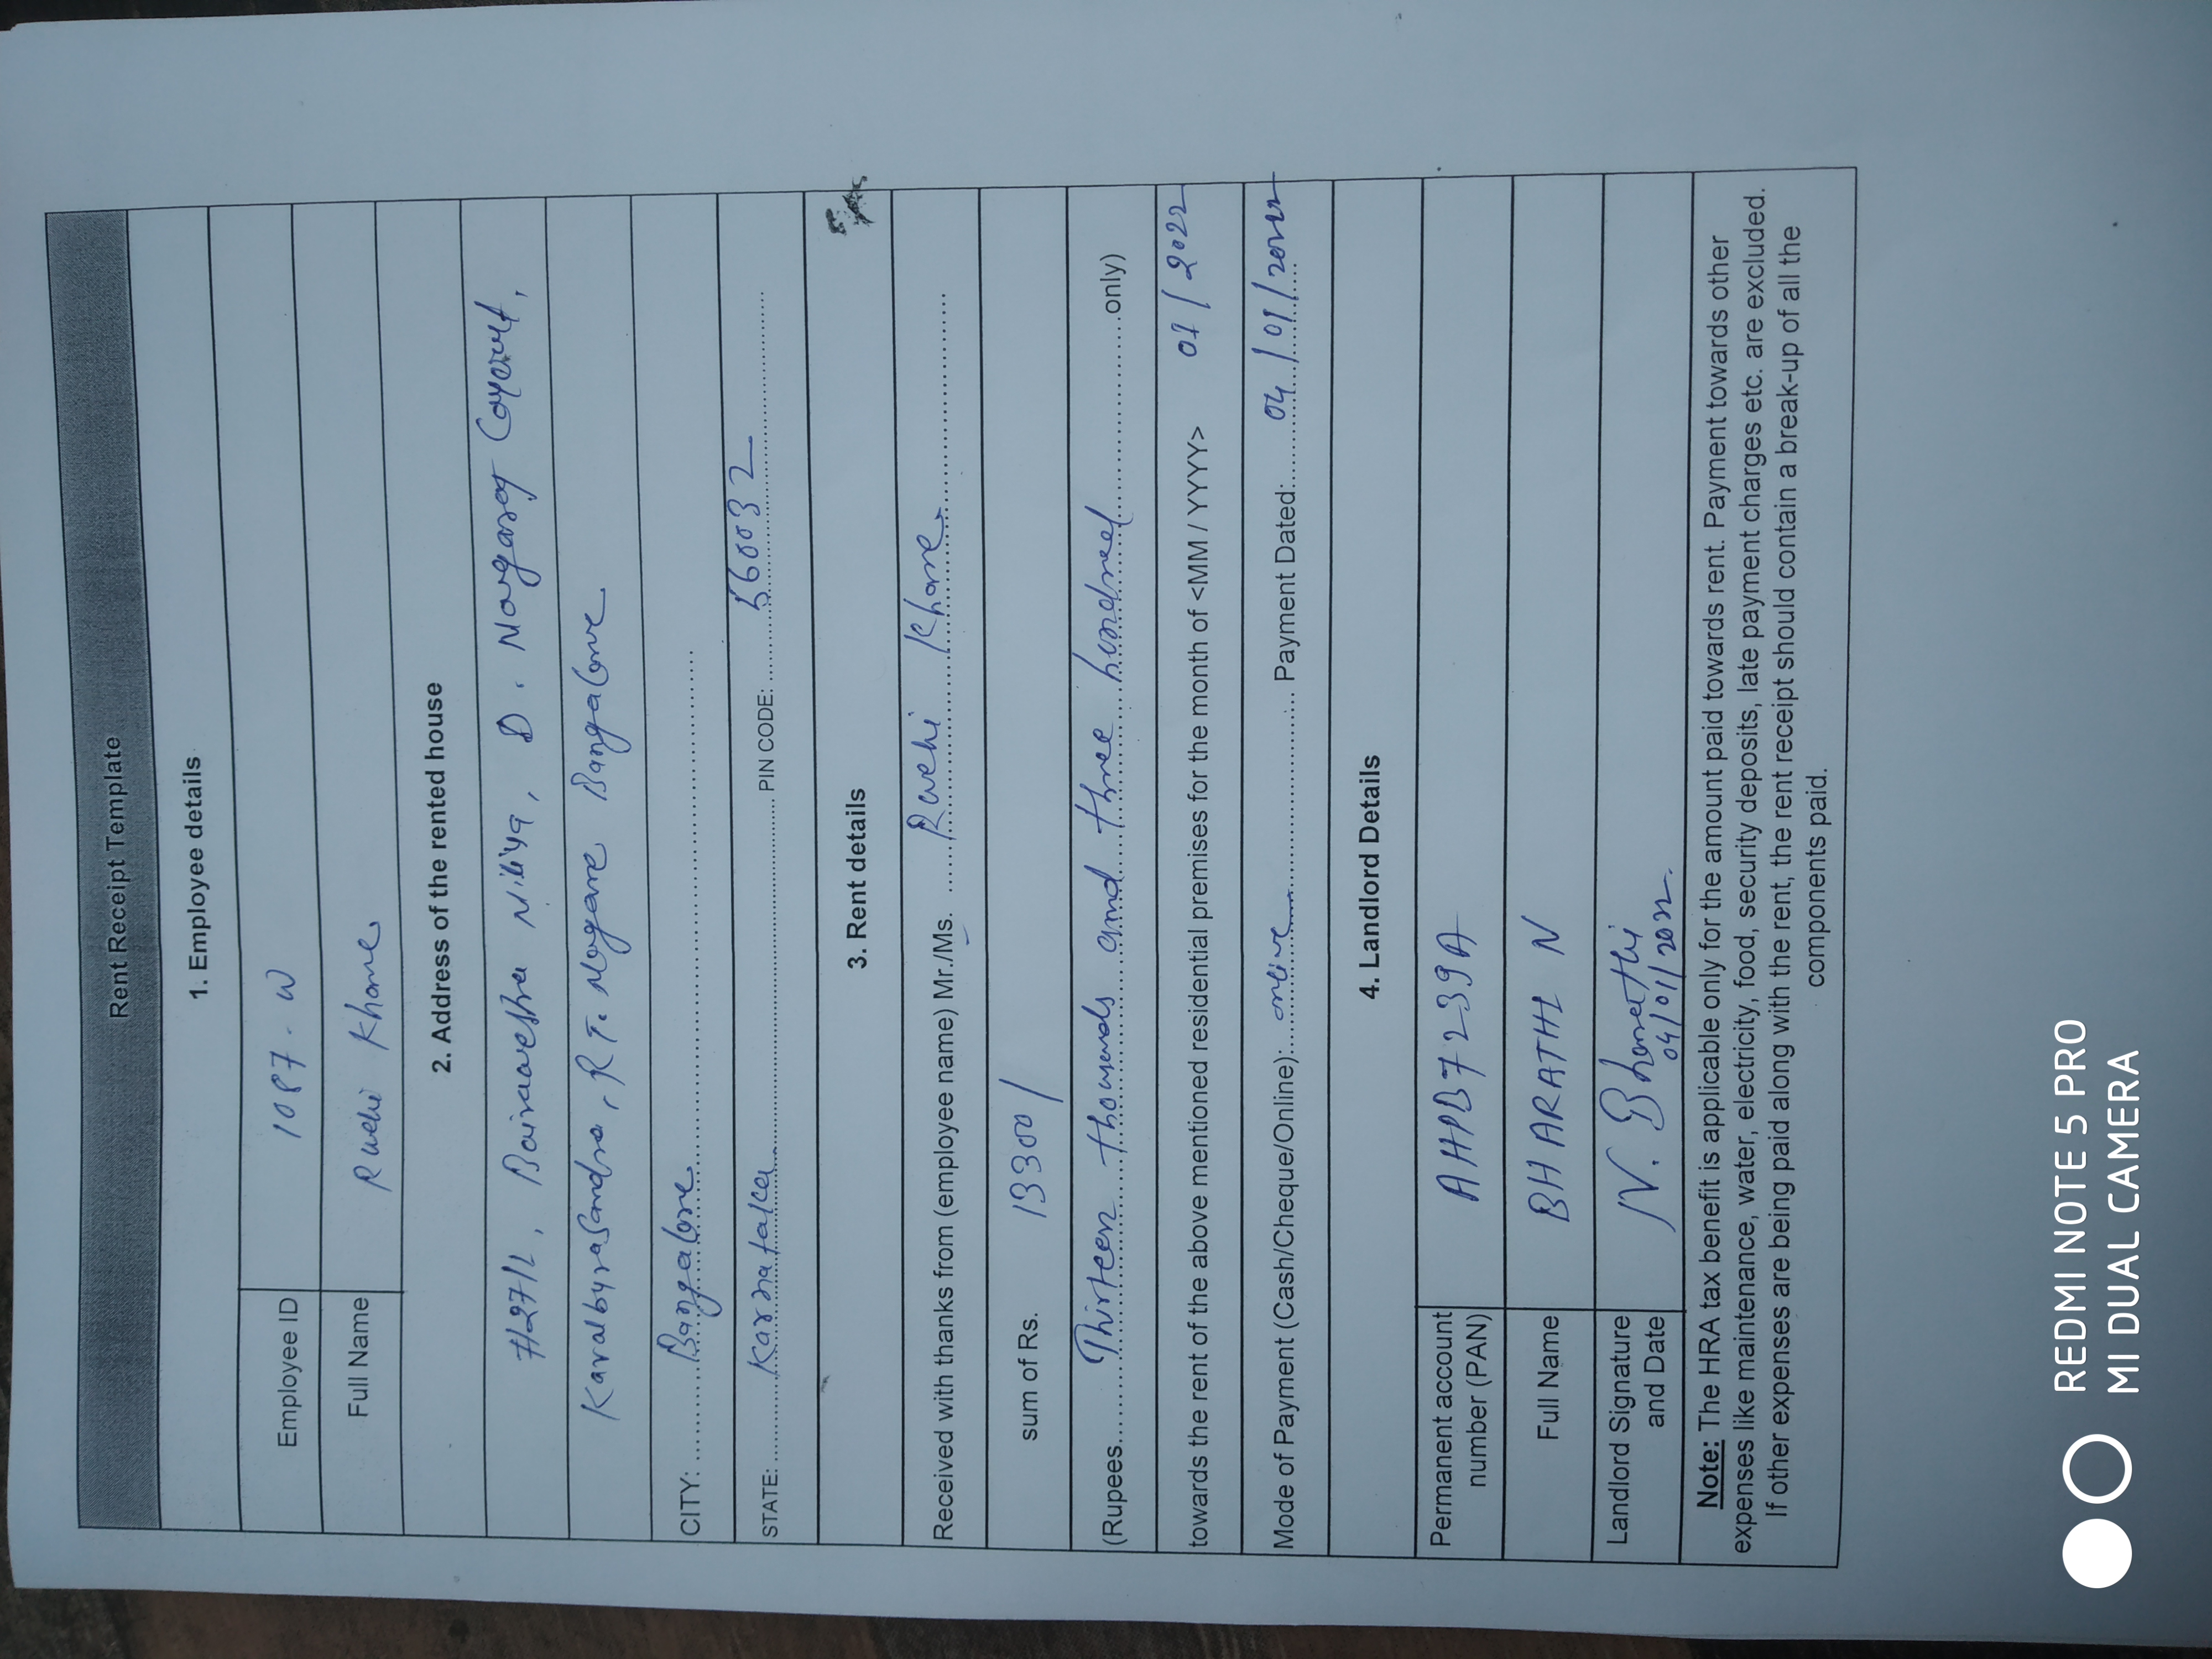 Rent Receipt Template
1. Employee details
Employee ID 1087 - W
Full Name Ruchi Khare
2. Address of the rented house
#27/1, D.
Karalbyrasandra, R T. Nagare Bangalore
CITY: Bangalore
STATE: Karnataka PIN CODE: 560032
3. Rent details
Received with thanks from (employee name) Mr./Ms. Ruchi Khare
sum of Rs. 13300/
(Rupees Thirteen thousands and three hundred only)
towards the rent of the above mentioned residential premises for the month of <MM / YYYY> 01/2022
Mode of Payment (Cash/Cheque/Online): online Payment Dated: 04/01/2022
4. Landlord Details
Permanent account
number (PAN) AHPB7239A
Full Name BHARATHI N
Landlord Signature N. Bharathi
and Date 04/01/2022.
Note: The HRA tax benefit is applicable only for the amount paid towards rent. Payment towards other
expenses like maintenance, water, electricity, food, security deposits, late payment charges etc. are excluded.
If other expenses are being paid along with the rent, the rent receipt should contain a break-up of all the
components paid.
REDMI NOTE 5 PRO
MI DUAL CAMERA